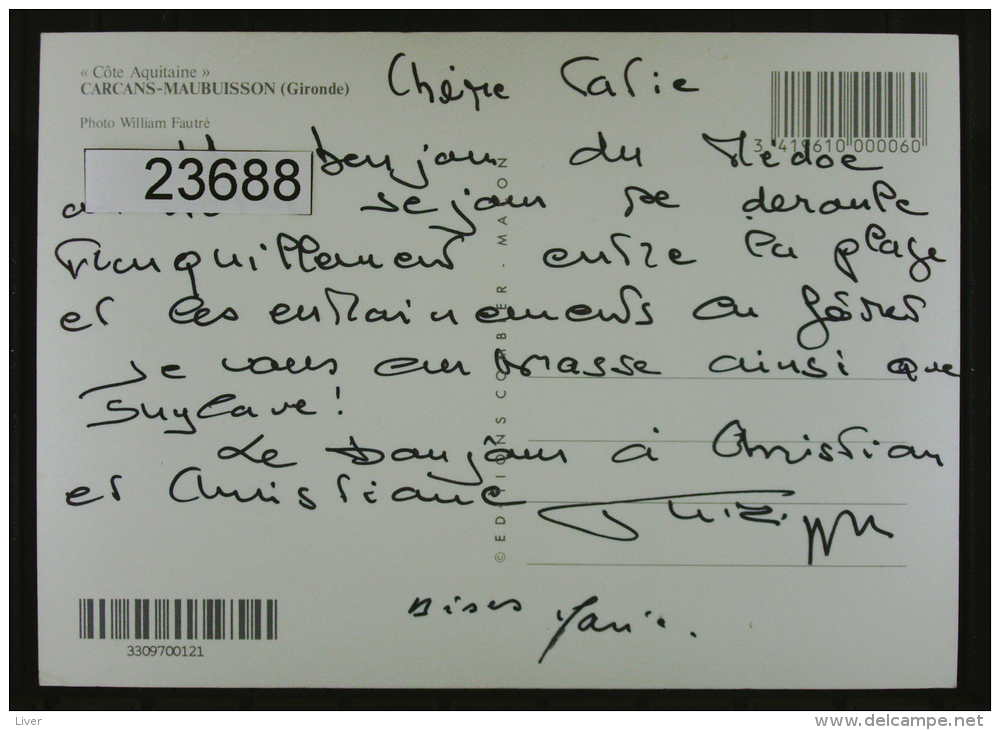 « Côte Aquitaine »
CARCANS-MAUBUISSON (Gironde)
Photo William Fautré
Chère
3 419610 000060
23688
du Médoc
séjour se déroule
tranquillement entre la plage
et les entrainements en forêt
Je vous embrasse ainsi que
Le bonjour à Christian
et Christiane
Philippe
Bises Marie.
© EDITIONS COMBIER - MACON
3309700121
Liver
www.delcampe.net